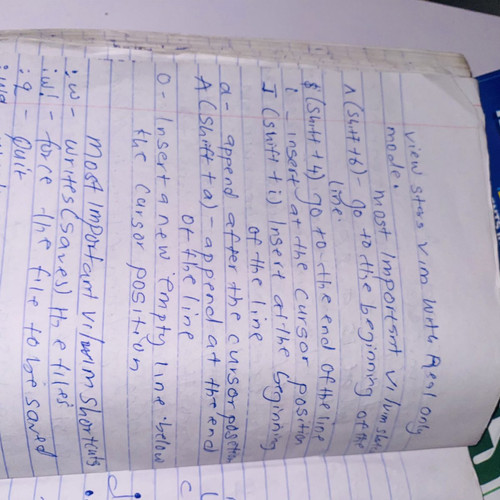 view stars vim with Real only
mode.
most important vi/vim
^ (shift+6) - go to the beginning of the
line.
$ (shift+4) go to the end of the line
i - insert at the cursor position
I (shift + i) Insert at the beginning
of the line
a - append after the cursor position
A (shift + a) - append at the end
of the line
O - Insert a new empty line below
the cursor position
most important vi/vim shortcuts
:w - writes (saves) the files
:w! - force the file to be saved
:q - Quit